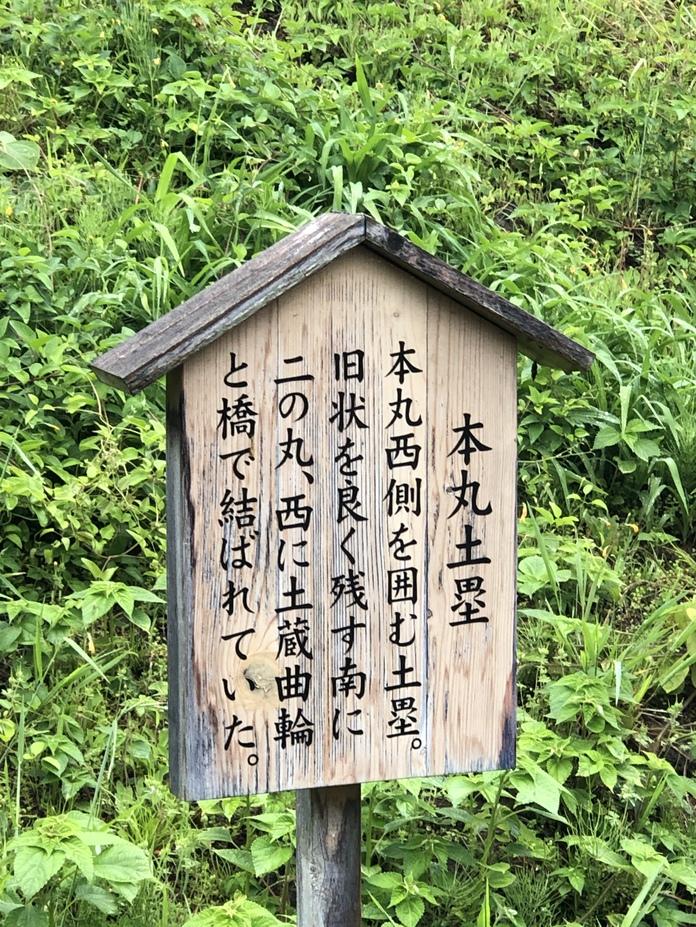 本丸土塁
本丸西側を囲む土塁。
旧状を良く残す南に
二の丸、西に土蔵曲輪
と橋で結ばれていた。